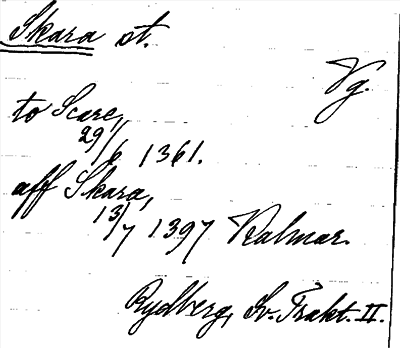 Skara st.
Vg.
to Scare,
29/6 1361.
aff Skara,
13/7 1397 Kalmar.
Rydberg, Sv. Trakt. II.